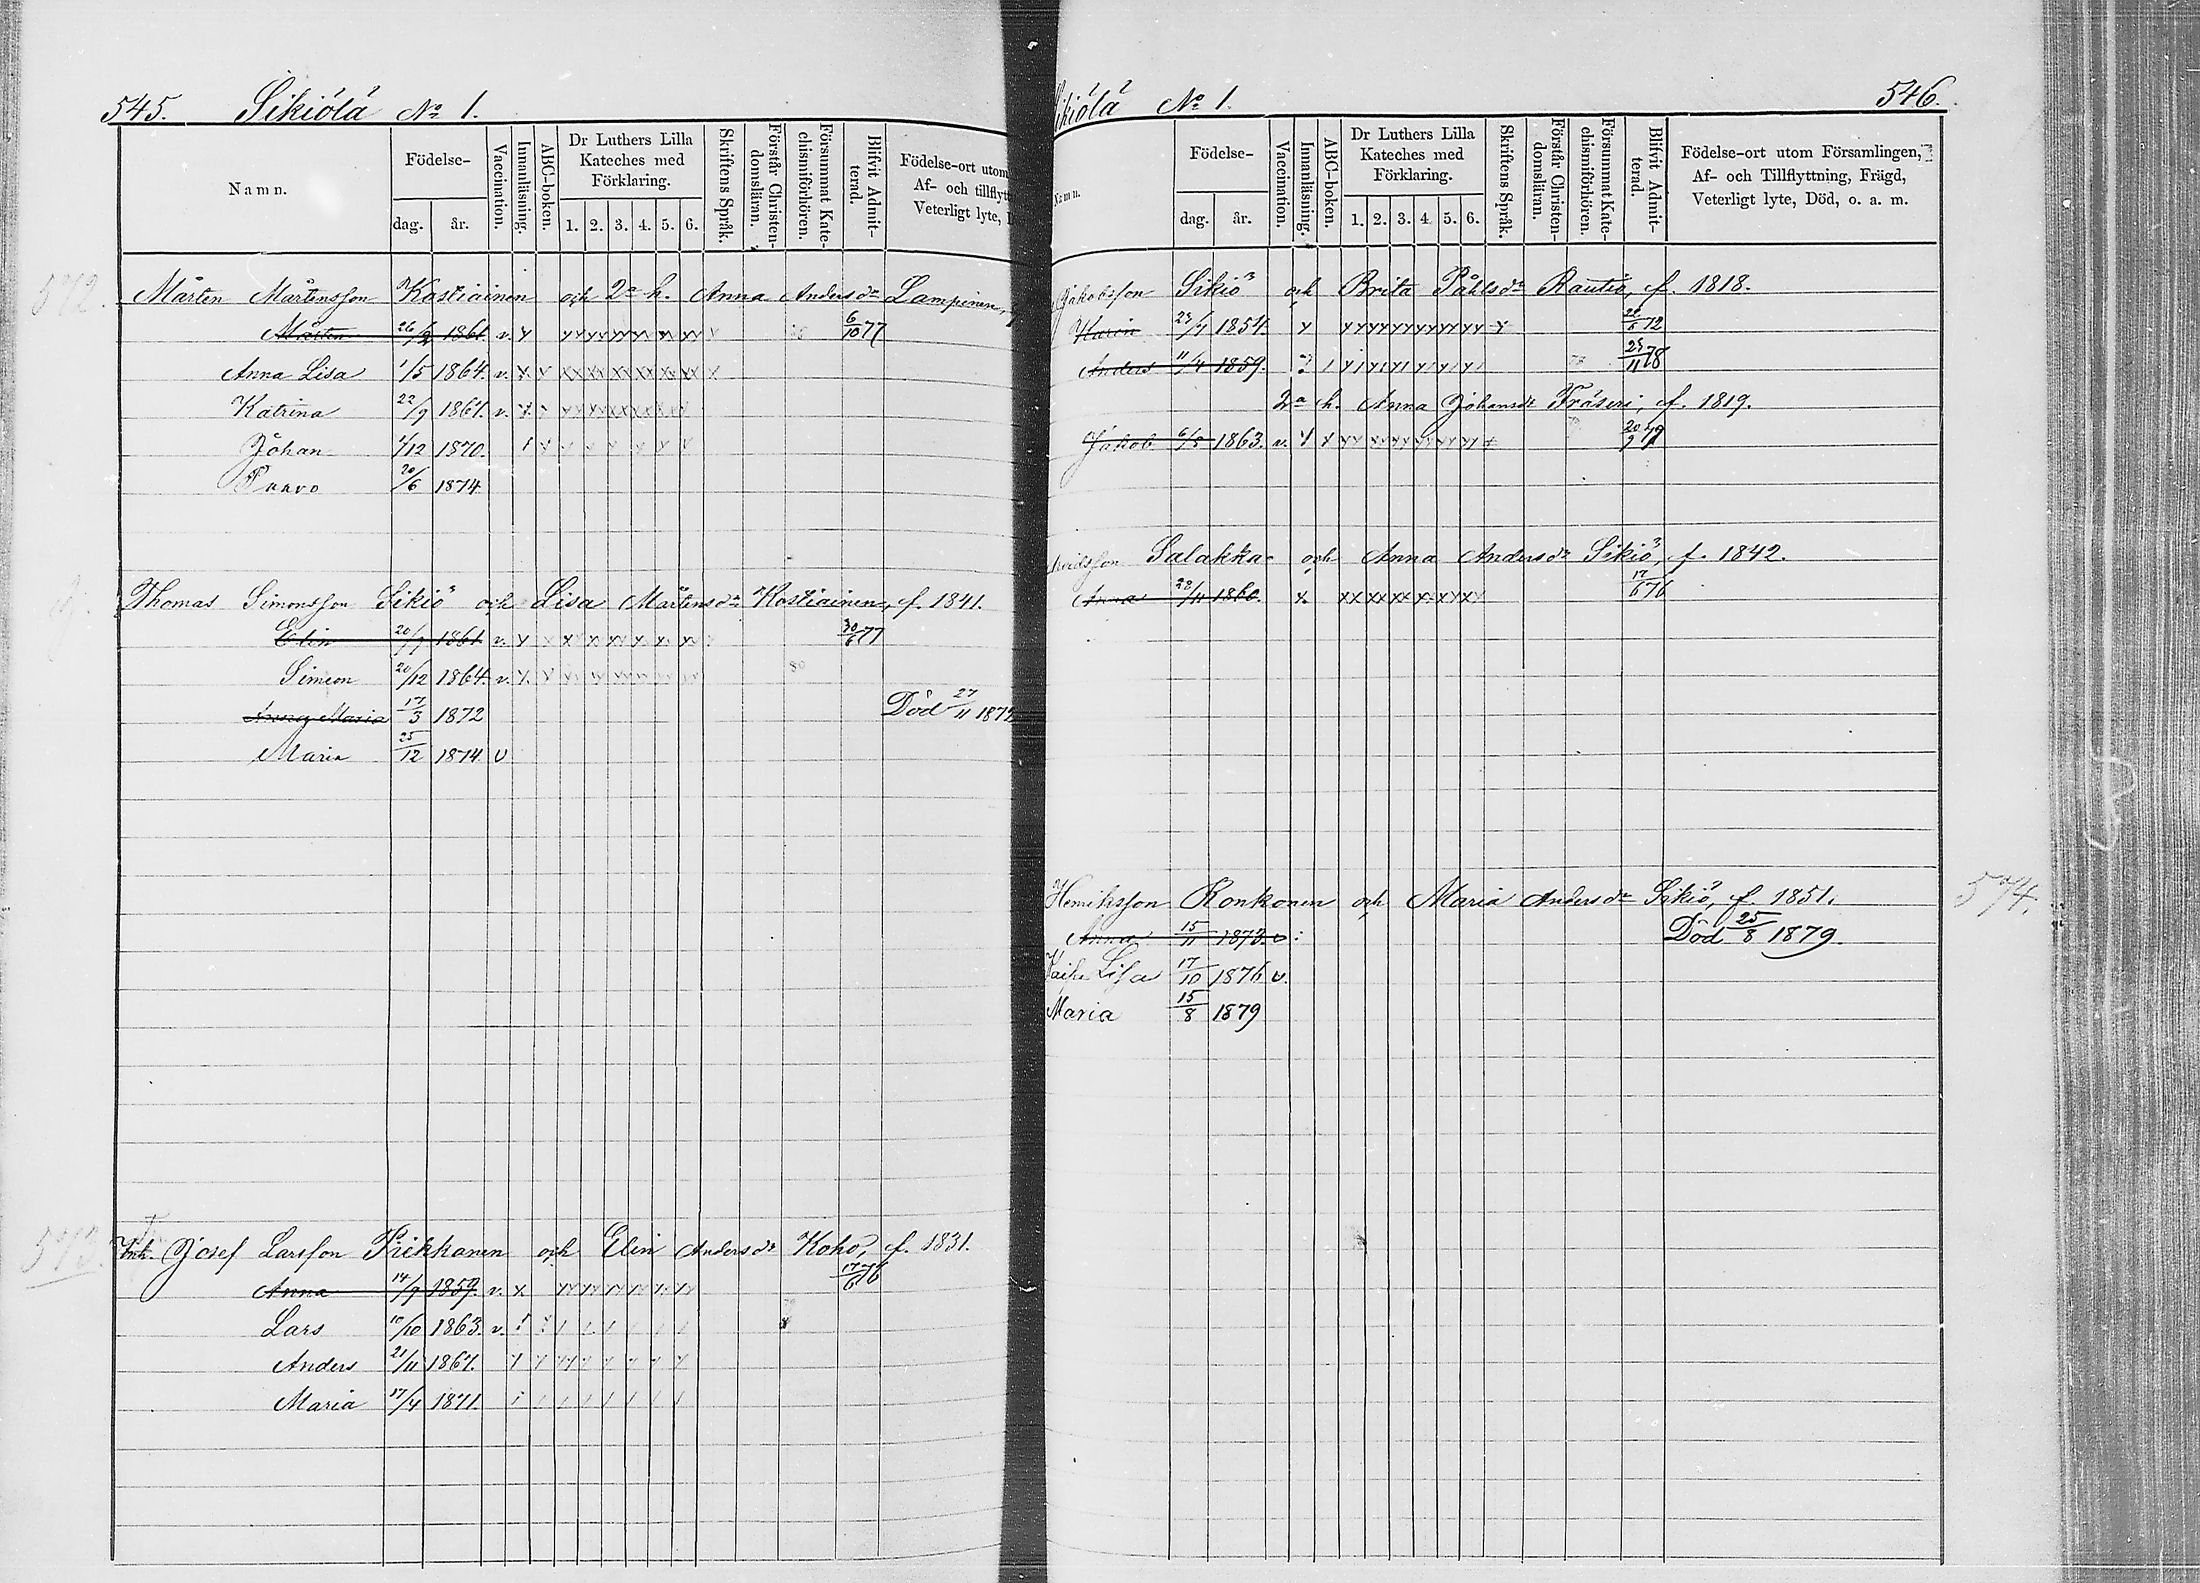 545. Sikiölä No 1.
Namn. Födelse- dag. år. Vaccination. Innanläsning. ABC-boken. Dr Luthers Lilla Kateches med Förklaring. 1. 2. 3. 4. 5. 6. Skriftens Språk. Förstår Christen-domsläran. Försummat Kate-chismiförhören. Blifvit Admit-terad. Födelse-ort utom Af- och tillflytt Veterligt lyte,
572.
Mårten Mårtensson Kostiainen och 2a h. Anna Andersdr Lampinen,
Mårten 26/2 1861 v. 6/10 77
Anna Lisa 1/5 1864. v.
Katrina 22/9 1867. v.
Johan 4/12 1870.
Paavo 20/6 1874
Thomas Simonsson Sikiö och Lisa Mårtensdr Kostiainen, f. 1841.
Elin 20/7 1861 v. 30/6 77
Simeon 20/12 1864. v. 80
Anna Maria 17/3 1872 Död 27/11 187
Maria 25/12 1874 v
573.
Inh. Josef Larsson Pirkkanen och Elin Andersdr Koho, f. 1831.
Anna 14/9 1859. v. 17/6 76
Lars 10/10 1863. v.
Anders 21/11 1867.
Maria 17/4 1871.
ikiölä No 1. 546.
Namn. Födelse- dag. år. Vaccination. Innanläsning. ABC-boken. Dr Luthers Lilla Kateches med Förklaring. 1. 2. 3. 4. 5. 6. Skriftens Språk. Förstår Christen-domsläran. Försummat Kate-chismiförhören. Blifvit Admit-terad. Födelse-ort utom Församlingen, Af- och Tillflyttning, Frägd, Veterligt lyte, Död, o. a. m.
Jakobsson Sikiö och Brita Påhlsdr Rautio, f. 1818.
Karin 23/4 1854. 22/6 72
Anders 11/4 1859. 78 25/11 78
2a h. Anna Johansdr Fröseri, f. 1819.
Jakob 6/8 1863. v. 20/9 79
Salakka och Anna Andersdr Sikiö, f. 1842.
Anna 28/11 1860. 17/6 76
574.
Henriksson Ronkonen och Maria Andersdr Sikiö, f. 1851.
Anna 15/11 1873. v Död 25/8 1879.
Kaisa Lisa 17/10 1876 v.
Maria 15/8 1879